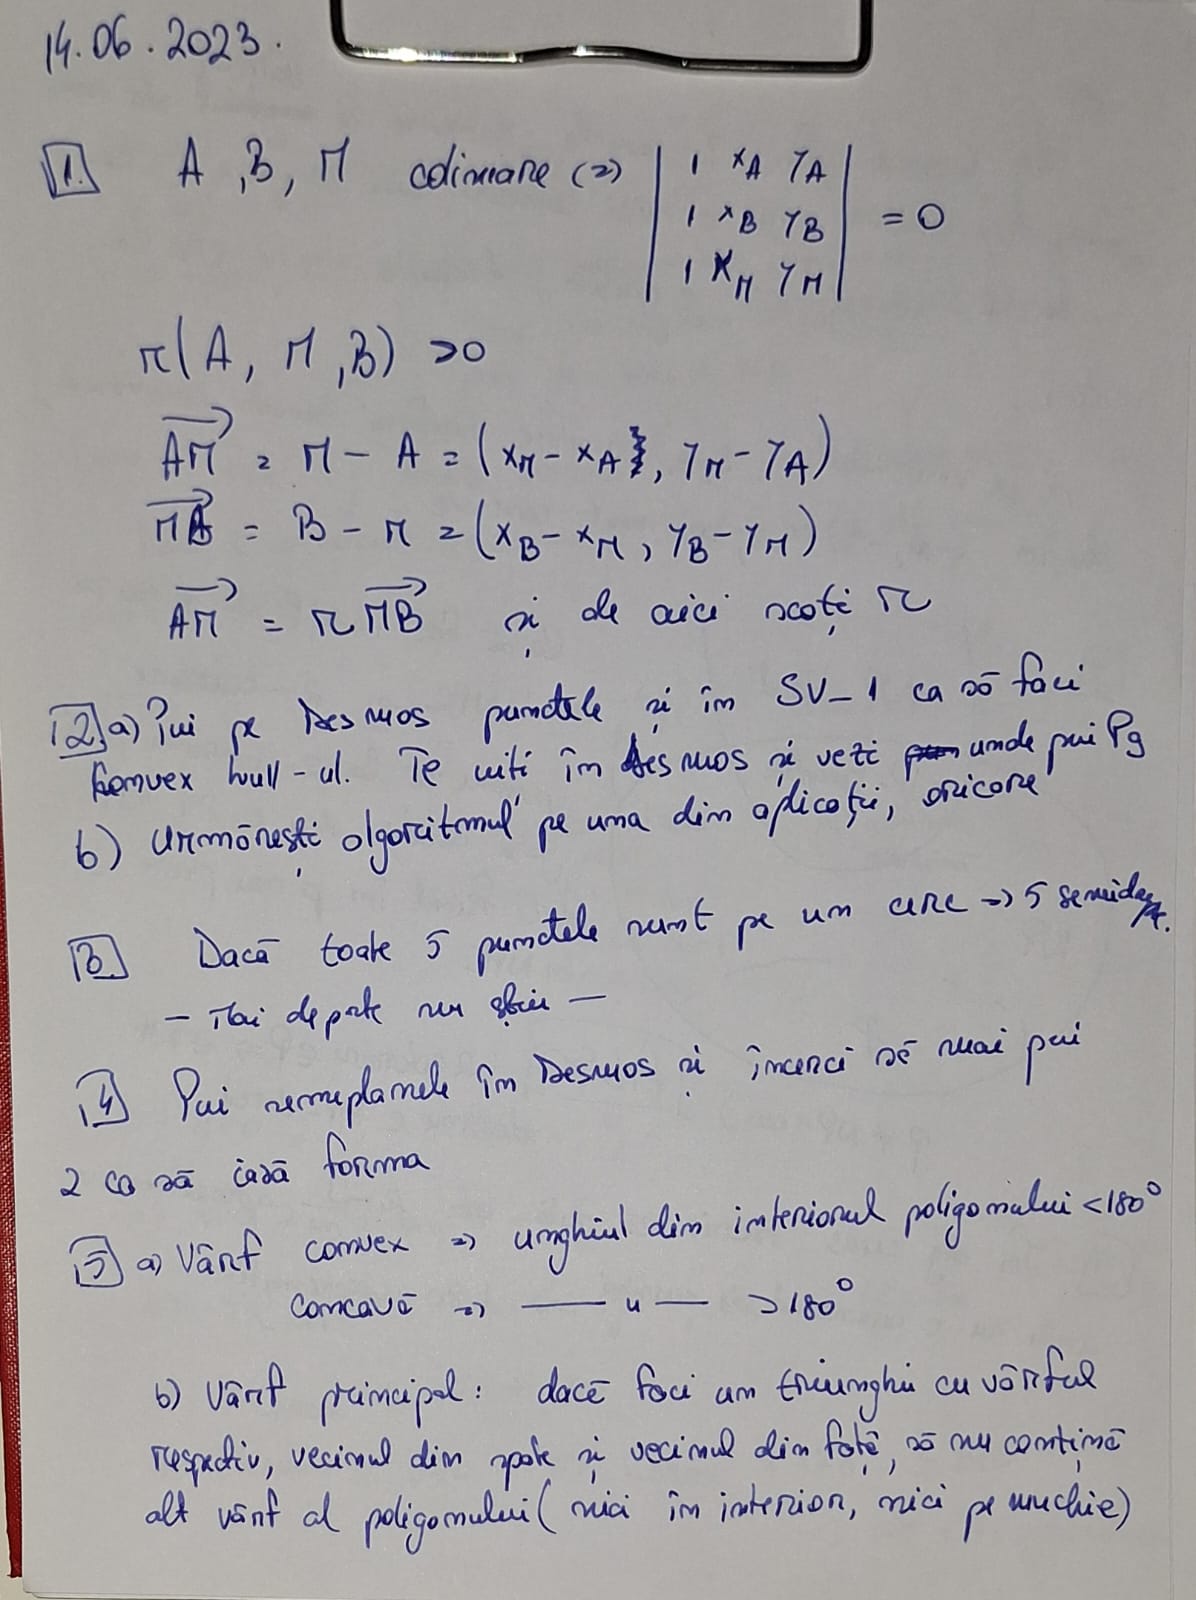 14.06.2023.
1. A, B, M coliniare (=) | 1 xA yA |
| 1 xB yB | = 0
| 1 xM yM |
r(A, M, B) >0
AM = M - A = (xM - xA, yM - yA)
MB = B - M = (xB - xM, yB - yM)
AM = r MB și de aici scoți r
2. a) Pui pe Desmos punctele și în SV-1 ca să faci
Convex hull-ul. Te uiți în Desmos și vezi unde pui Pg
b) Urmărești algoritmul pe una din aplicații, oricare
3. Dacă toate 5 punctele sunt pe un cerc => 5 semidrepte.
- Mai departe nu știu -
4. Pui semiplanele în Desmos și încerci să mai pui
2 ca să iasă forma
5. a) Vârf convex => unghiul din interiorul poligonului < 180°
concavă => — u — > 180°
b) Vârf principal: dacă faci un triunghi cu vârful
respectiv, vecinul din spate și vecinul din față, să nu conțină
alt vârf al poligonului (nici în interior, nici pe muchie)